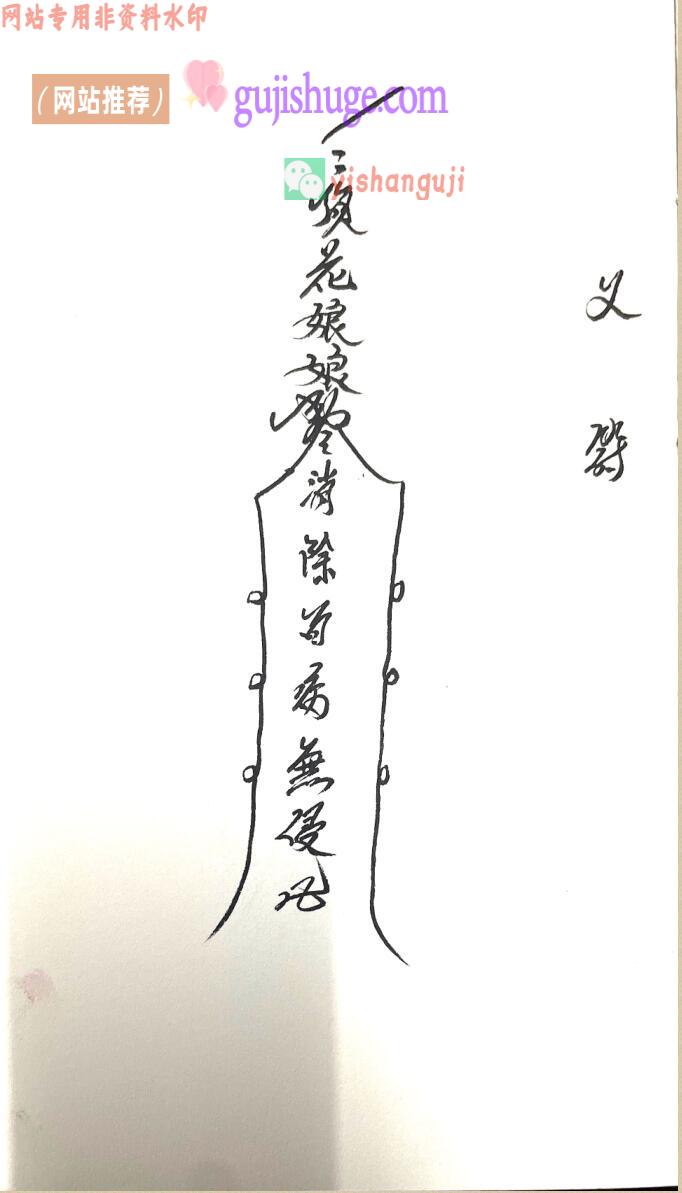 网站专用非资料水印
（网站推荐）
gujishuge.com
yishanguji
又
花娘娘
消除百病無侵